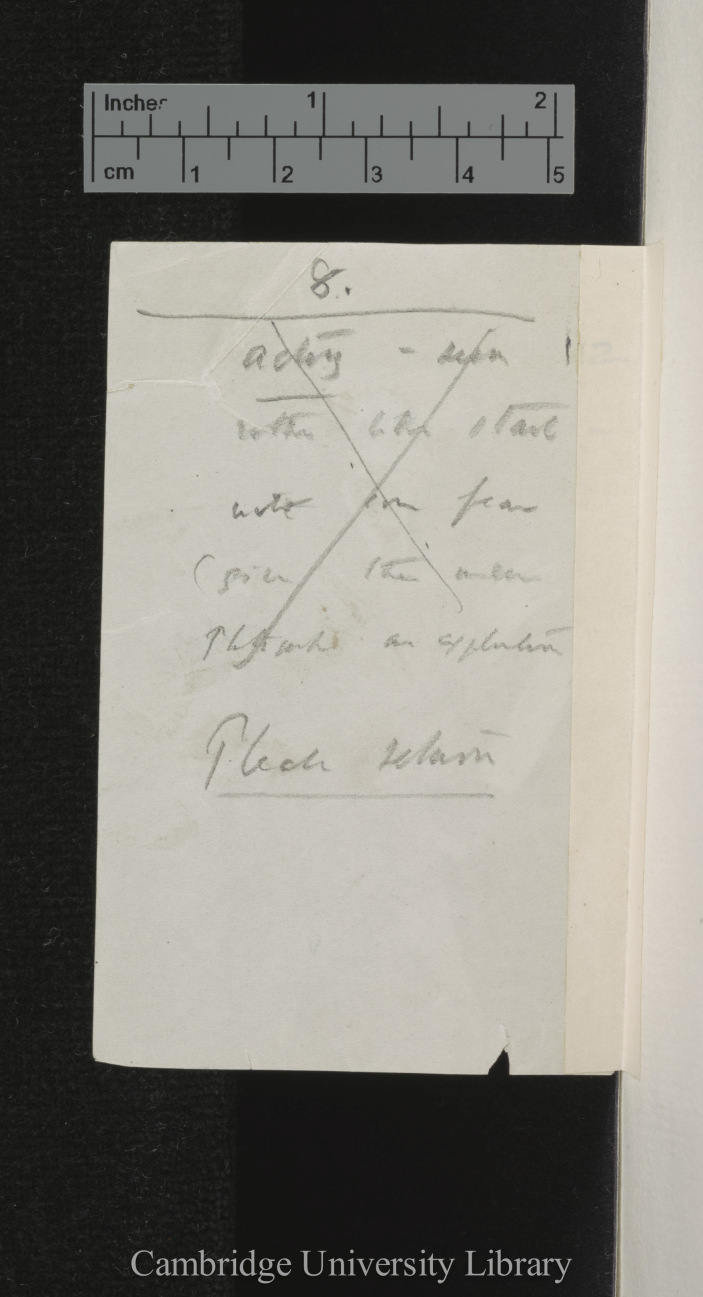 Inches 1 2
cm 1 2 3 4 5
8.
acting -
rather like start
note from fear
(given the
an explanation
Please return
Cambridge University Library